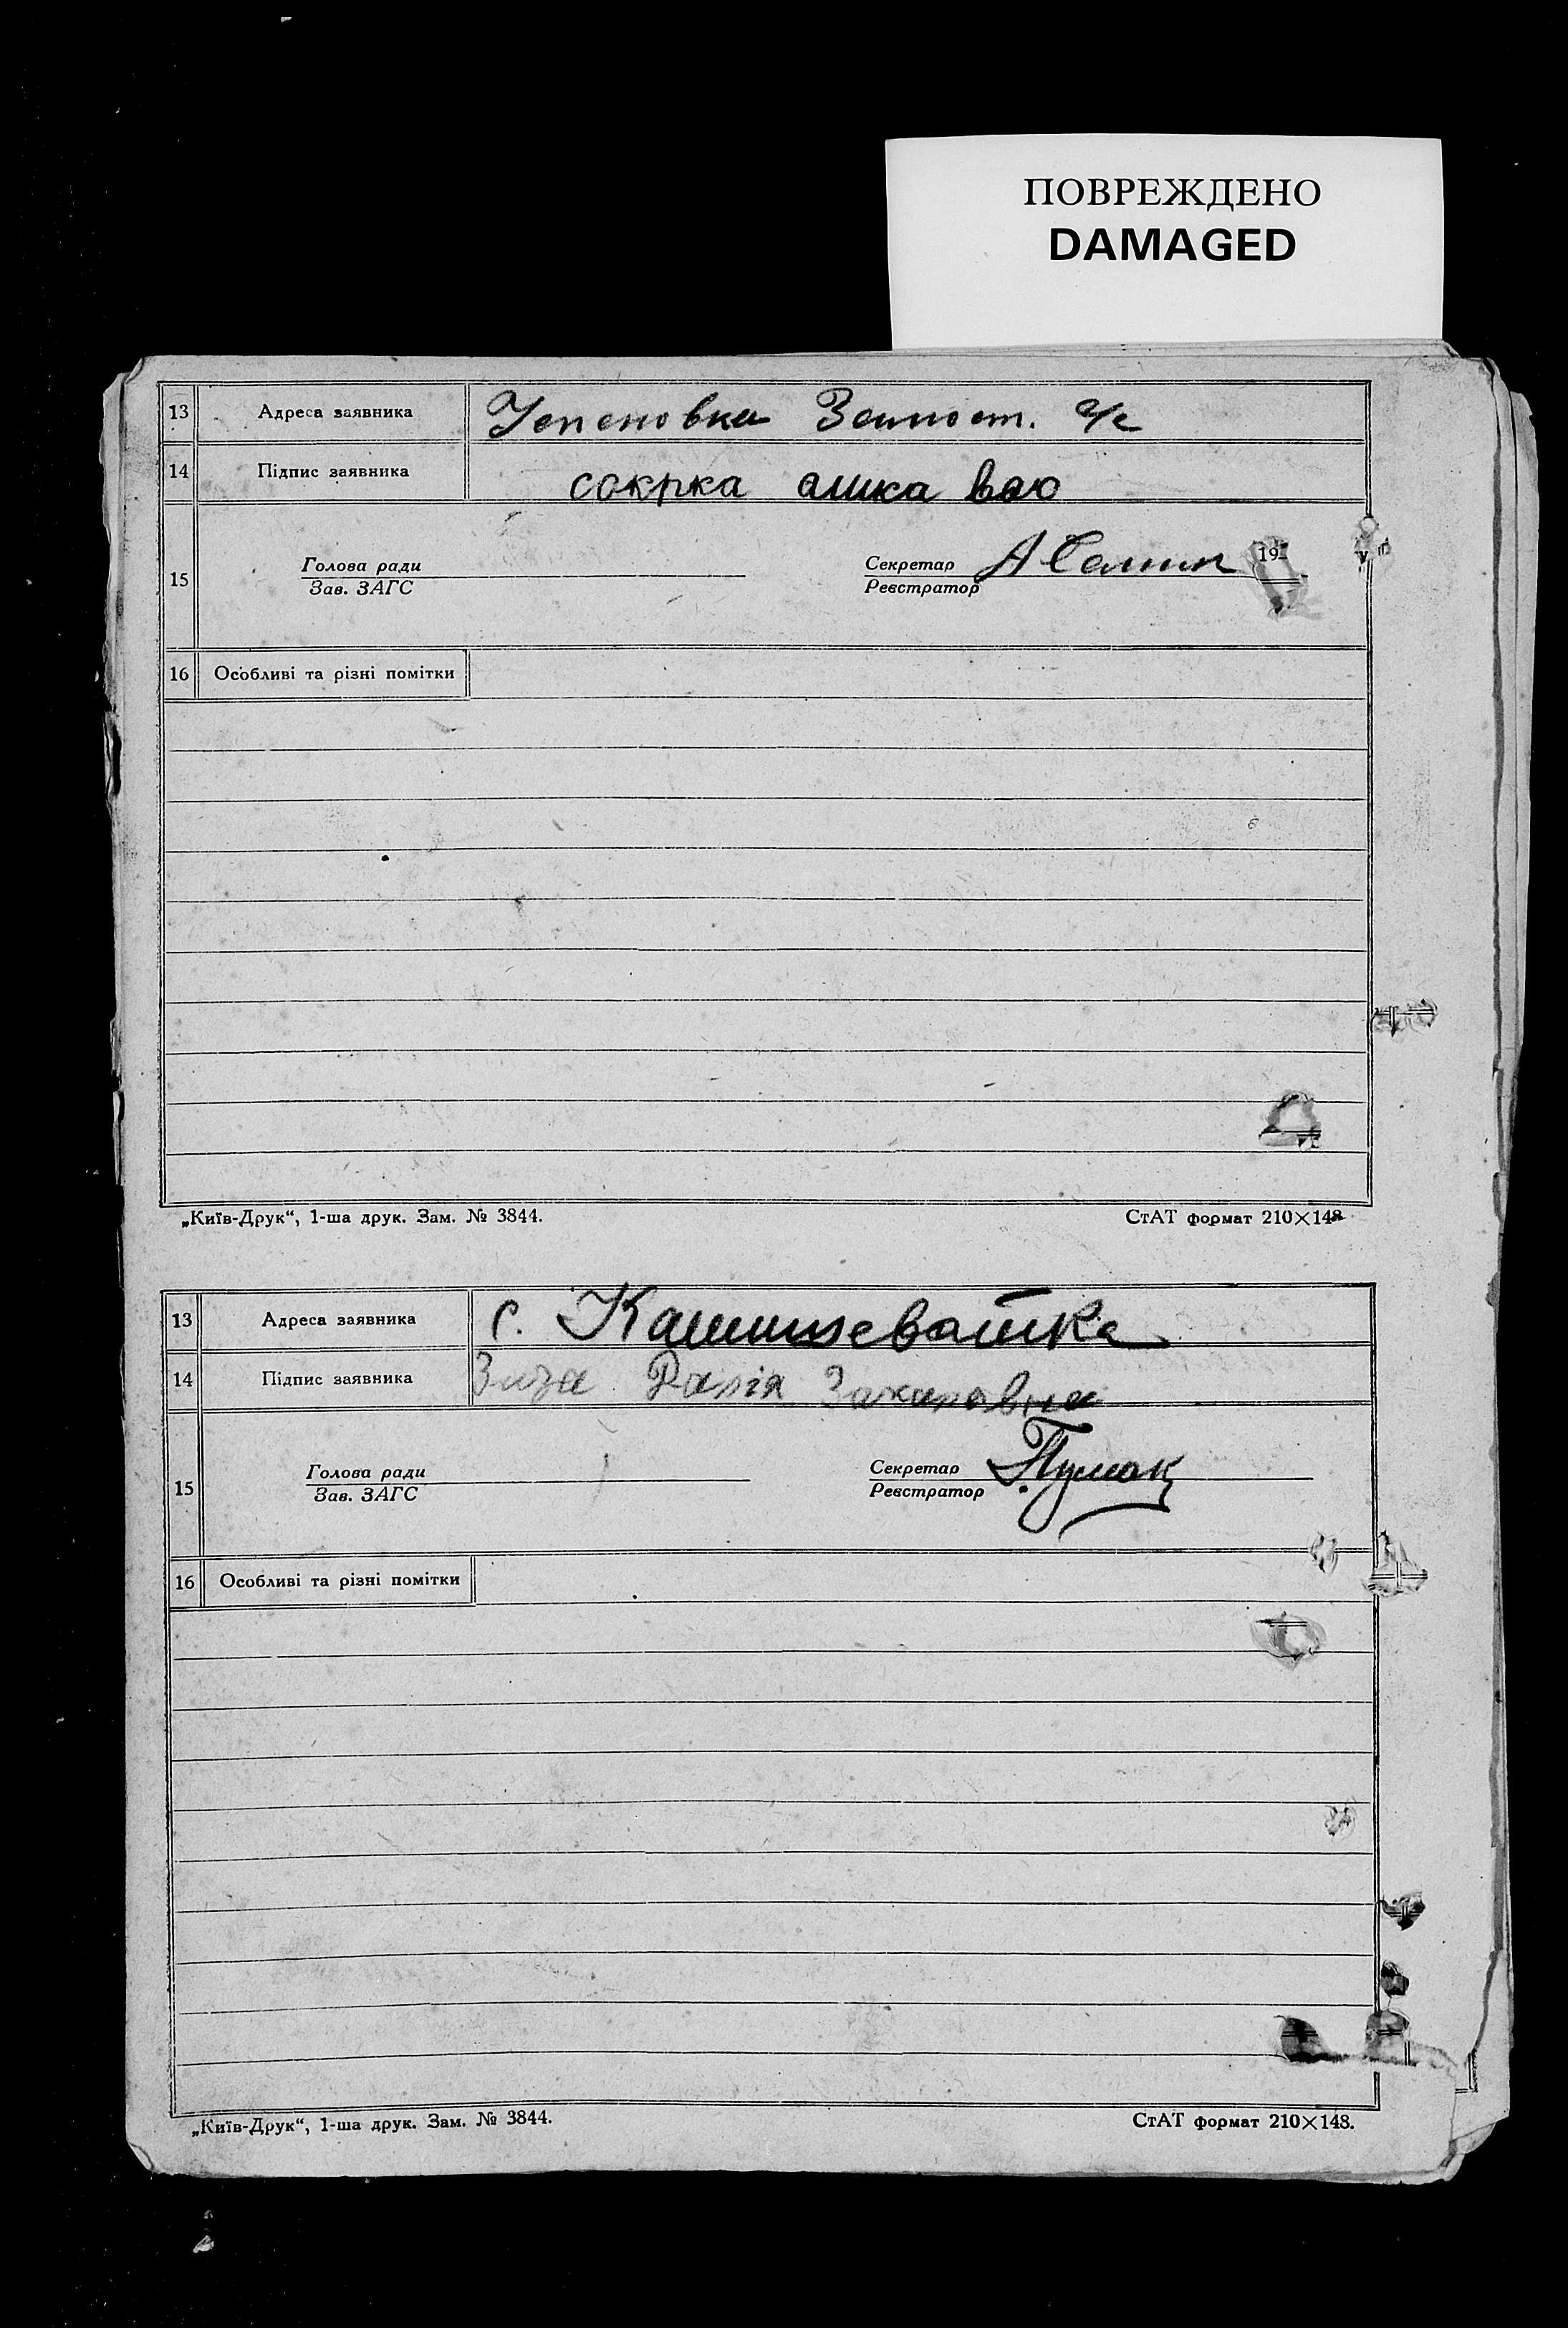 ПОВРЕЖДЕНО
DAMAGED
13 Адреса заявника
14 Підпис заявника сокрка ашка ваю
15 Голова ради Зав. ЗАГС Секретар Реєстратор 19
16 Особливі та різні помітки
„Київ-Друк“, 1-ша друк. Зам. № 3844. СтАТ формат 210×148
13 Адреса заявника с.
14 Підпис заявника Захаровна
15 Голова ради Зав. ЗАГС Секретар Реєстратор
16 Особливі та різні помітки
„Київ-Друк“, 1-ша друк. Зам. № 3844. СтАТ формат 210×148.